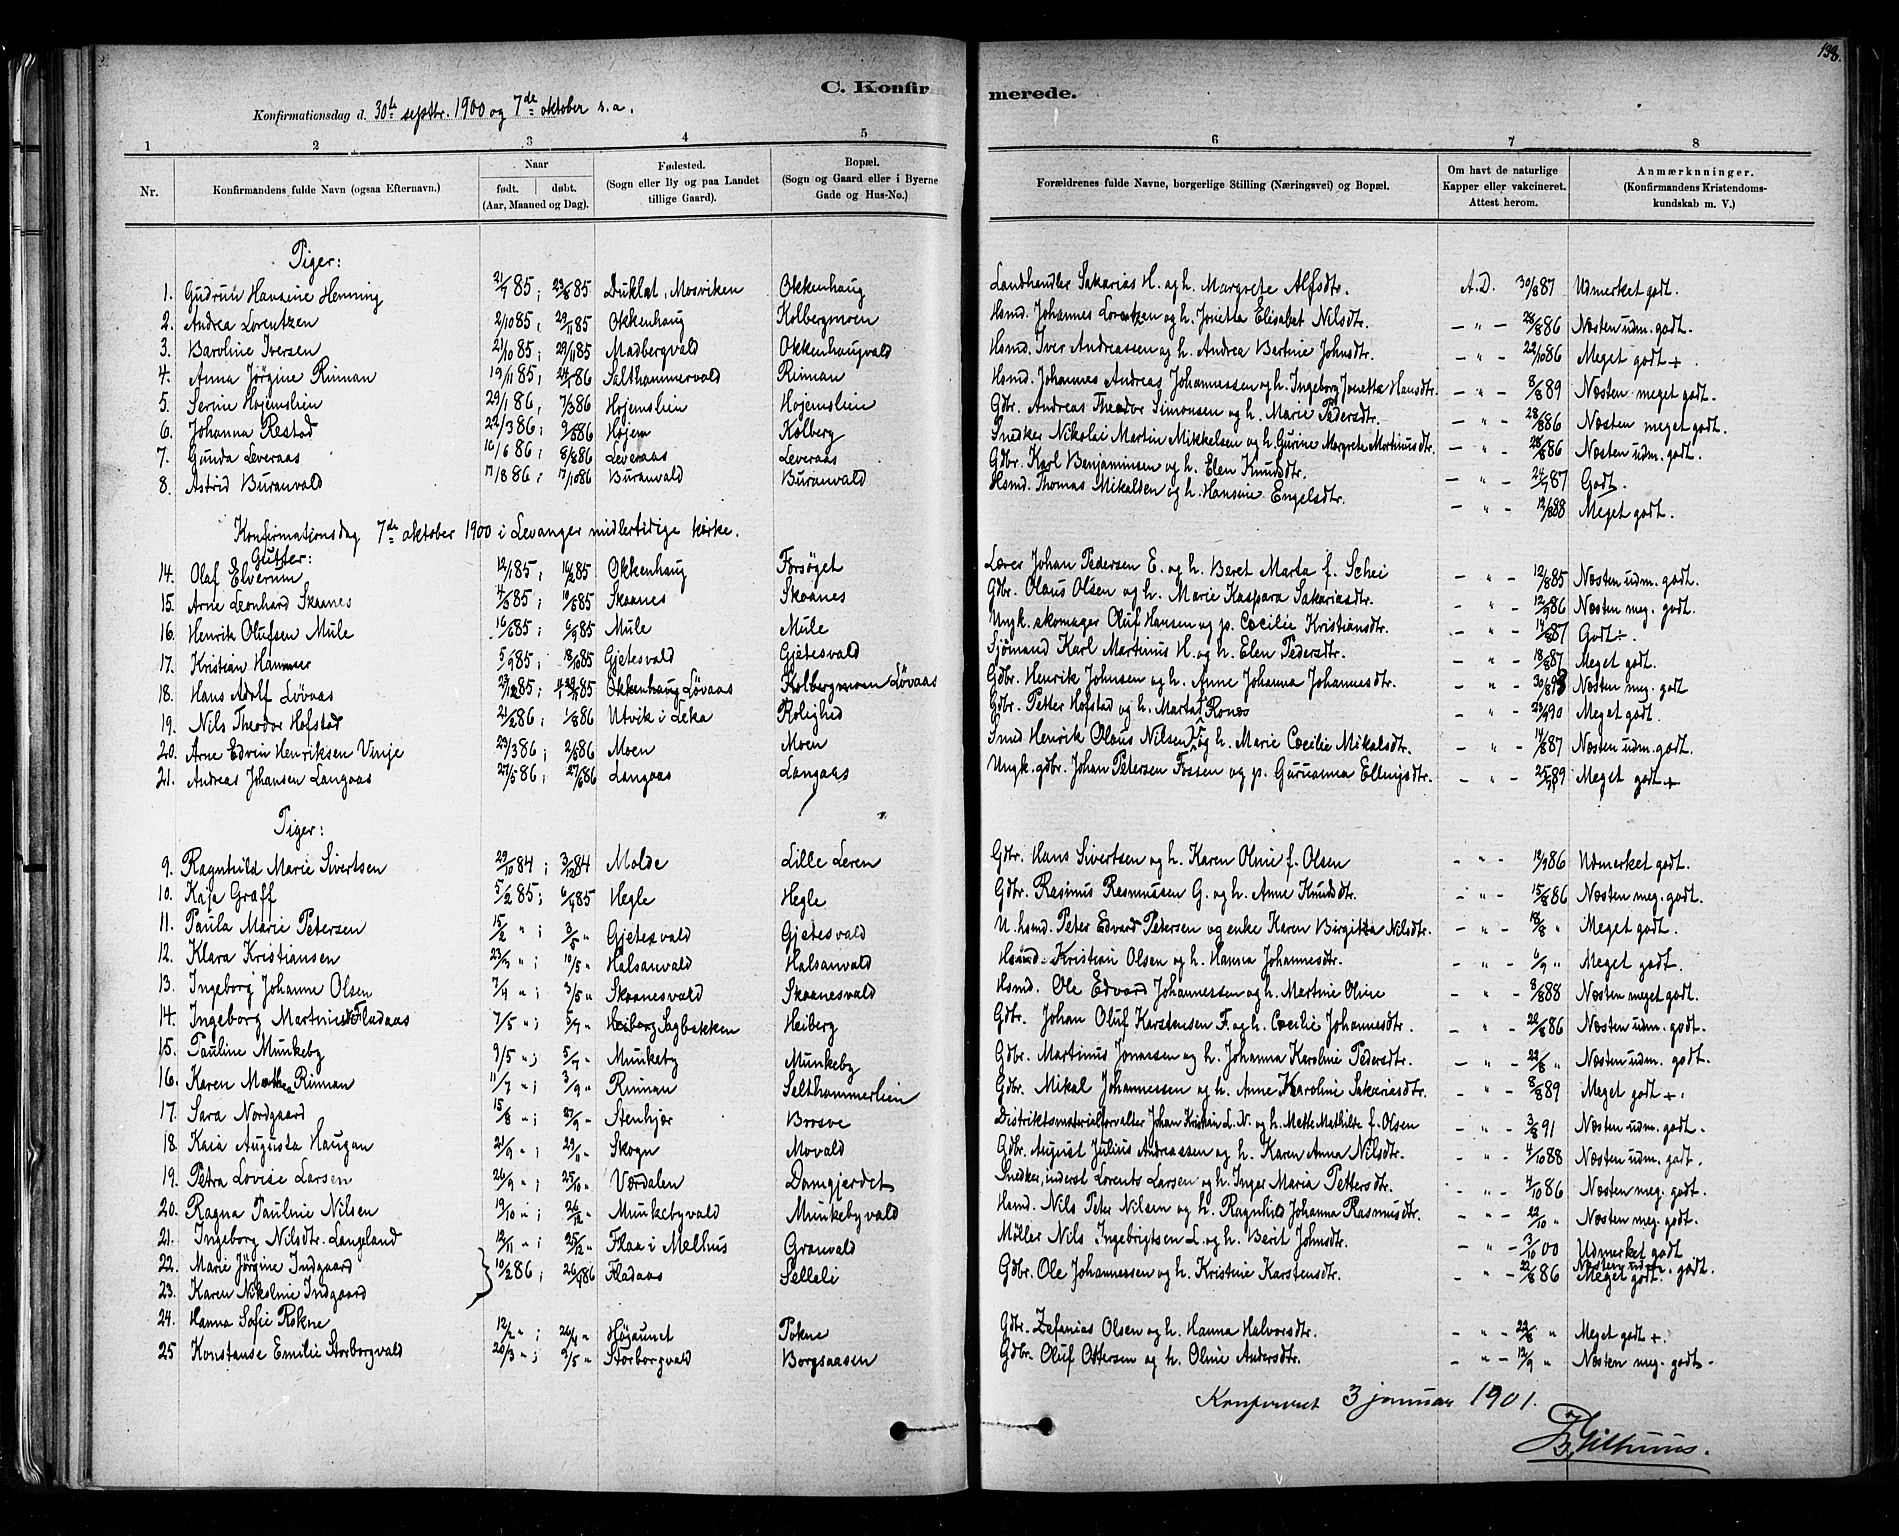 138.
C. Konfirmerede.
Konfirmationsdag d. 30te septbr. 1900 og 7de oktober s. a.
1 2 3 4 5 6 7 8
Nr. Konfirmandens fulde Navn (ogsaa Efternavn). Naar født. døbt. (Aar, Maaned og Dag). Fødested. (Sogn eller By og paa Landet tillige Gaard). Bopæl. (Sogn og Gaard eller i Byerne Gade og Hus-No.) Forældrenes fulde Navne, borgerlige Stilling (Næringsvei) og Bopæl. Om havt de naturlige Kapper eller vakcineret. Attest herom. Anmærknninger. (Konfirmandens Kristendomskundskab m. V.)
Piger:
1. Gudrun Hansine Henning 21/7 85; 23/8 85 Duklæt, Mosviken Okkenhaug Landhandler Sakarias H. og h. Margrete Alfsdtr. A.D. 30/8 87 Udmerket godt.
2. Andrea Lorentzen 2/10 85; 29/11 85 Okkenhaug Kolbergmoen Hsmd. Johannes Lorentzen og h. Jonetta Elisabet Nilsdtr. – " – 28/8 86 Næsten udm. godt.
3. Baroline Iversen 21/10 85; 29/11 85 Madbergvald Okkenhaugvald Hsmd. Iver Andreassen og h. Andrea Bertine Johnsdtr. – " – 22/10 86 Meget godt +.
4. Anna Jørgine Rinnan 19/11 85; 86 Salthammervald Rinnan Hsmd. Johannes Andreas Johannessen og h. Ingeborg Jonetta Hansdtr. – " – 8/8 89 Næsten meget godt.
5. Serine Hojemslien 29/1 86, 7/3 86 Hojemslien Hojemslien Gdbr. Andreas Theodor Simonsen og h. Marie Pedersdtr. – " – 28/8 86 Næsten meget godt.
6. Johanna Restad 22/3 86; 86 Hojem Kolberg Snedker Nikolai Martin Mikkelsen og h. Gurine Margrete Martinusdtr. – " – 28/8 86 Næsten udm. godt.
7. Gunda Leveraas 10/6 86; 8/8 86 Leveraas Leveraas Gdbr. Karl Benjaminsen og h. Elen Knudsdtr. – " – 87 Godt.
8. Astrid Buranvald 17/8 86; 17/10 86 Buranvald Buranvald Hsmd. Thomas Mikalsen og h. Hansine Engelsdtr. – " – 88 Meget godt.
Konfirmationsdag 7de oktober 1900 i Levanger midlertidige kirke.
Gutter:
14. Olaf Elverum 12/1 85; 85 Okkenhaug Forsøget Lærer Johan Pedersen E. og h. Beret Marta f. Schei – " – 12/8 85 Næsten udm. godt.
15. Arne Leonhard Skaanes 85; 85 Skaanes Skaanes Gdbr. Olaus Olsen og h. Marie Kaspara Sakariasdtr. – " – 12/9 86 Næsten meg. godt.
16. Henrik Olufsen Mule 85; 6/9 85 Mule Mule Ungk. skomager Oluf Hansen og p. Cæcilie Kristiansdtr. – " – 14/8 87 Godt ÷.
17. Kristian Hammer 5/9 85; 18/10 85 Gjetesvald Gjetesvald Sjømand Karl Martinus H. og h. Elen Pedersdtr. – " – 18/8 87 Meget godt.
18. Hans Adolf Løvaas 85; 85 Okkenhaug Løvaas Kolbergmoen Løvaas Gdbr. Henrik Johnsen og h. Anne Johanna Johannesdtr. – " – Næsten meg. godt
19. Nils Theodor Hofstad 21/2 86; 1/8 86 Utvik i Leka Rolighed Gdbr. Petter Hofstad og h. Marta f. Ronæs – " – 90 Meget godt.
20. Arne Edvin Henriksen Vinje 23/3 86; 86 Moen Moen Smed Henrik Olaus Nilsen V. og h. Marie Cæcilie Mikalsdtr. – " – 14/8 87 Næsten udm. godt.
21. Andreas Johansen Langaas 27/5 86; 27/6 86 Langaas Langaas Ungk. gdbr. Johan Petersen Fossen og p. Guruanna Ellingsdtr. – " – 89 Meget godt +
Piger:
9. Ragnhild Marie Sivertsen 29/10 84; 3/12 84 Molde Lille Leren Gdbr. Hans Sivertsen og h. Karen Oline f. Olsen – " – 12/9 86 Udmerket godt.
10. Kaja Graff 5/2 85; 85 Hegle Hegle Gdbr. Rasmus Rasmussen G. og h. Anne Knudsdtr. – " – 15/8 86 Næsten meg. godt.
11. Paula Marie Petersen 15/2 "; 3/5 " Gjetesvald Gjetesvald U. hsmd. Peter Edvard Petersen og enke Karen Birgitta Nilsdtr. – " – 18/8 " Meget godt.
12. Klara Kristiansen 23/3 "; 10/5 " Halsanvald Halsanvald Hsmd. Kristian Olsen og h. Hanna Johannesdtr. – " – 6/9 " Meget godt.
13. Ingeborg Johanne Olsen "; 3/5 " Skaanesvald Skaanesvald Hsmd. Ole Edvard Johannessen og h. Martine Oline – " – 8/8 88 Næsten meget godt.
14. Ingeborg Martine Fladaas 7/5 "; 5/7 " Heiberg Sagbakken Heiberg Gdbr. Johan Oluf Karstensen F. og h. Cæcilie Johannesdtr. – " – 22/8 86 Næsten udm. godt.
15. Pauline Munkeby 9/5 "; 5/7 " Munkeby Munkeby Gdbr. Martinus Jonassen og h. Johanna Karoline Pedersdtr. – " – 22/8 " Næsten udm. godt.
16. Karen Mathea Rinnan 11/7 "; 3/9 " Rinnan Salthammerlien Gdbr. Mikal Johannessen og h. Anne Karoline Sakariasdtr. – " – 8/8 89 Meget godt +.
17. Sara Nordgaard 15/8 "; 27/9 " Stenkjær Brosve Distriktsmaterialforvalter Johan Kristian L. N. og h. Mette Mathilde f. Olsen – " – 3/8 91 Næsten udm. godt.
18. Kaia Augusta Haugan 21/9 "; 29/11 " Skogn Movald Gdbr. August Julius Andreassen og h. Karen Anna Nilsdtr. – " – 4/10 88 Næsten udm. godt.
19. Petra Lovise Larsen 26/9 "; 25/10 " Værdalen Damgjerdet Snedker, inderst Lorents Larsen og h. Inger Maria Pettersdtr. – " – 4/10 86 Næsten meg. godt.
20. Ragna Pauline Nilsen 19/10 "; 26/12 " Munkebyvald Munkebyvald Hsmd. Nils Peter Nilsen og h. Ragnhild Johanna Rasmusdtr. – " – 22/10 " Næsten meg. godt.
21. Ingeborg Nilsdtr. Langeland 12/11 "; 25/12 " Flaa i Melhus Granvald Møller Nils Ingebrigtsen L. og h. Berit Johnsdtr. – " – 3/10 00 Udmerket godt
22. Marie Jørgine Indgaard } 10/2 86; 86 Fladaas Selleli Gdbr. Ole Johannessen og h. Kristine Karstensdtr. – " – 22/8 86 Næsten udm. godt.
23. Karen Nikoline Indgaard Meget godt.
24. Hanna Sofie Rokne 12/2 "; 26/4 " Høgaunet Rokne Gdbr. Zefanias Olsen og h. Hanna Halvorsdtr. – " – 22/8 " Meget godt +.
25 Konstanse Emilie Storborgvald 20/3 "; 9/5 " Storborgvald Borgsaasen Gdbr. Oluf Ottersen og h. Oline Andersdtr. – " – 12/9 " Næsten meg. godt.
Konfereret 3 januar 1901.